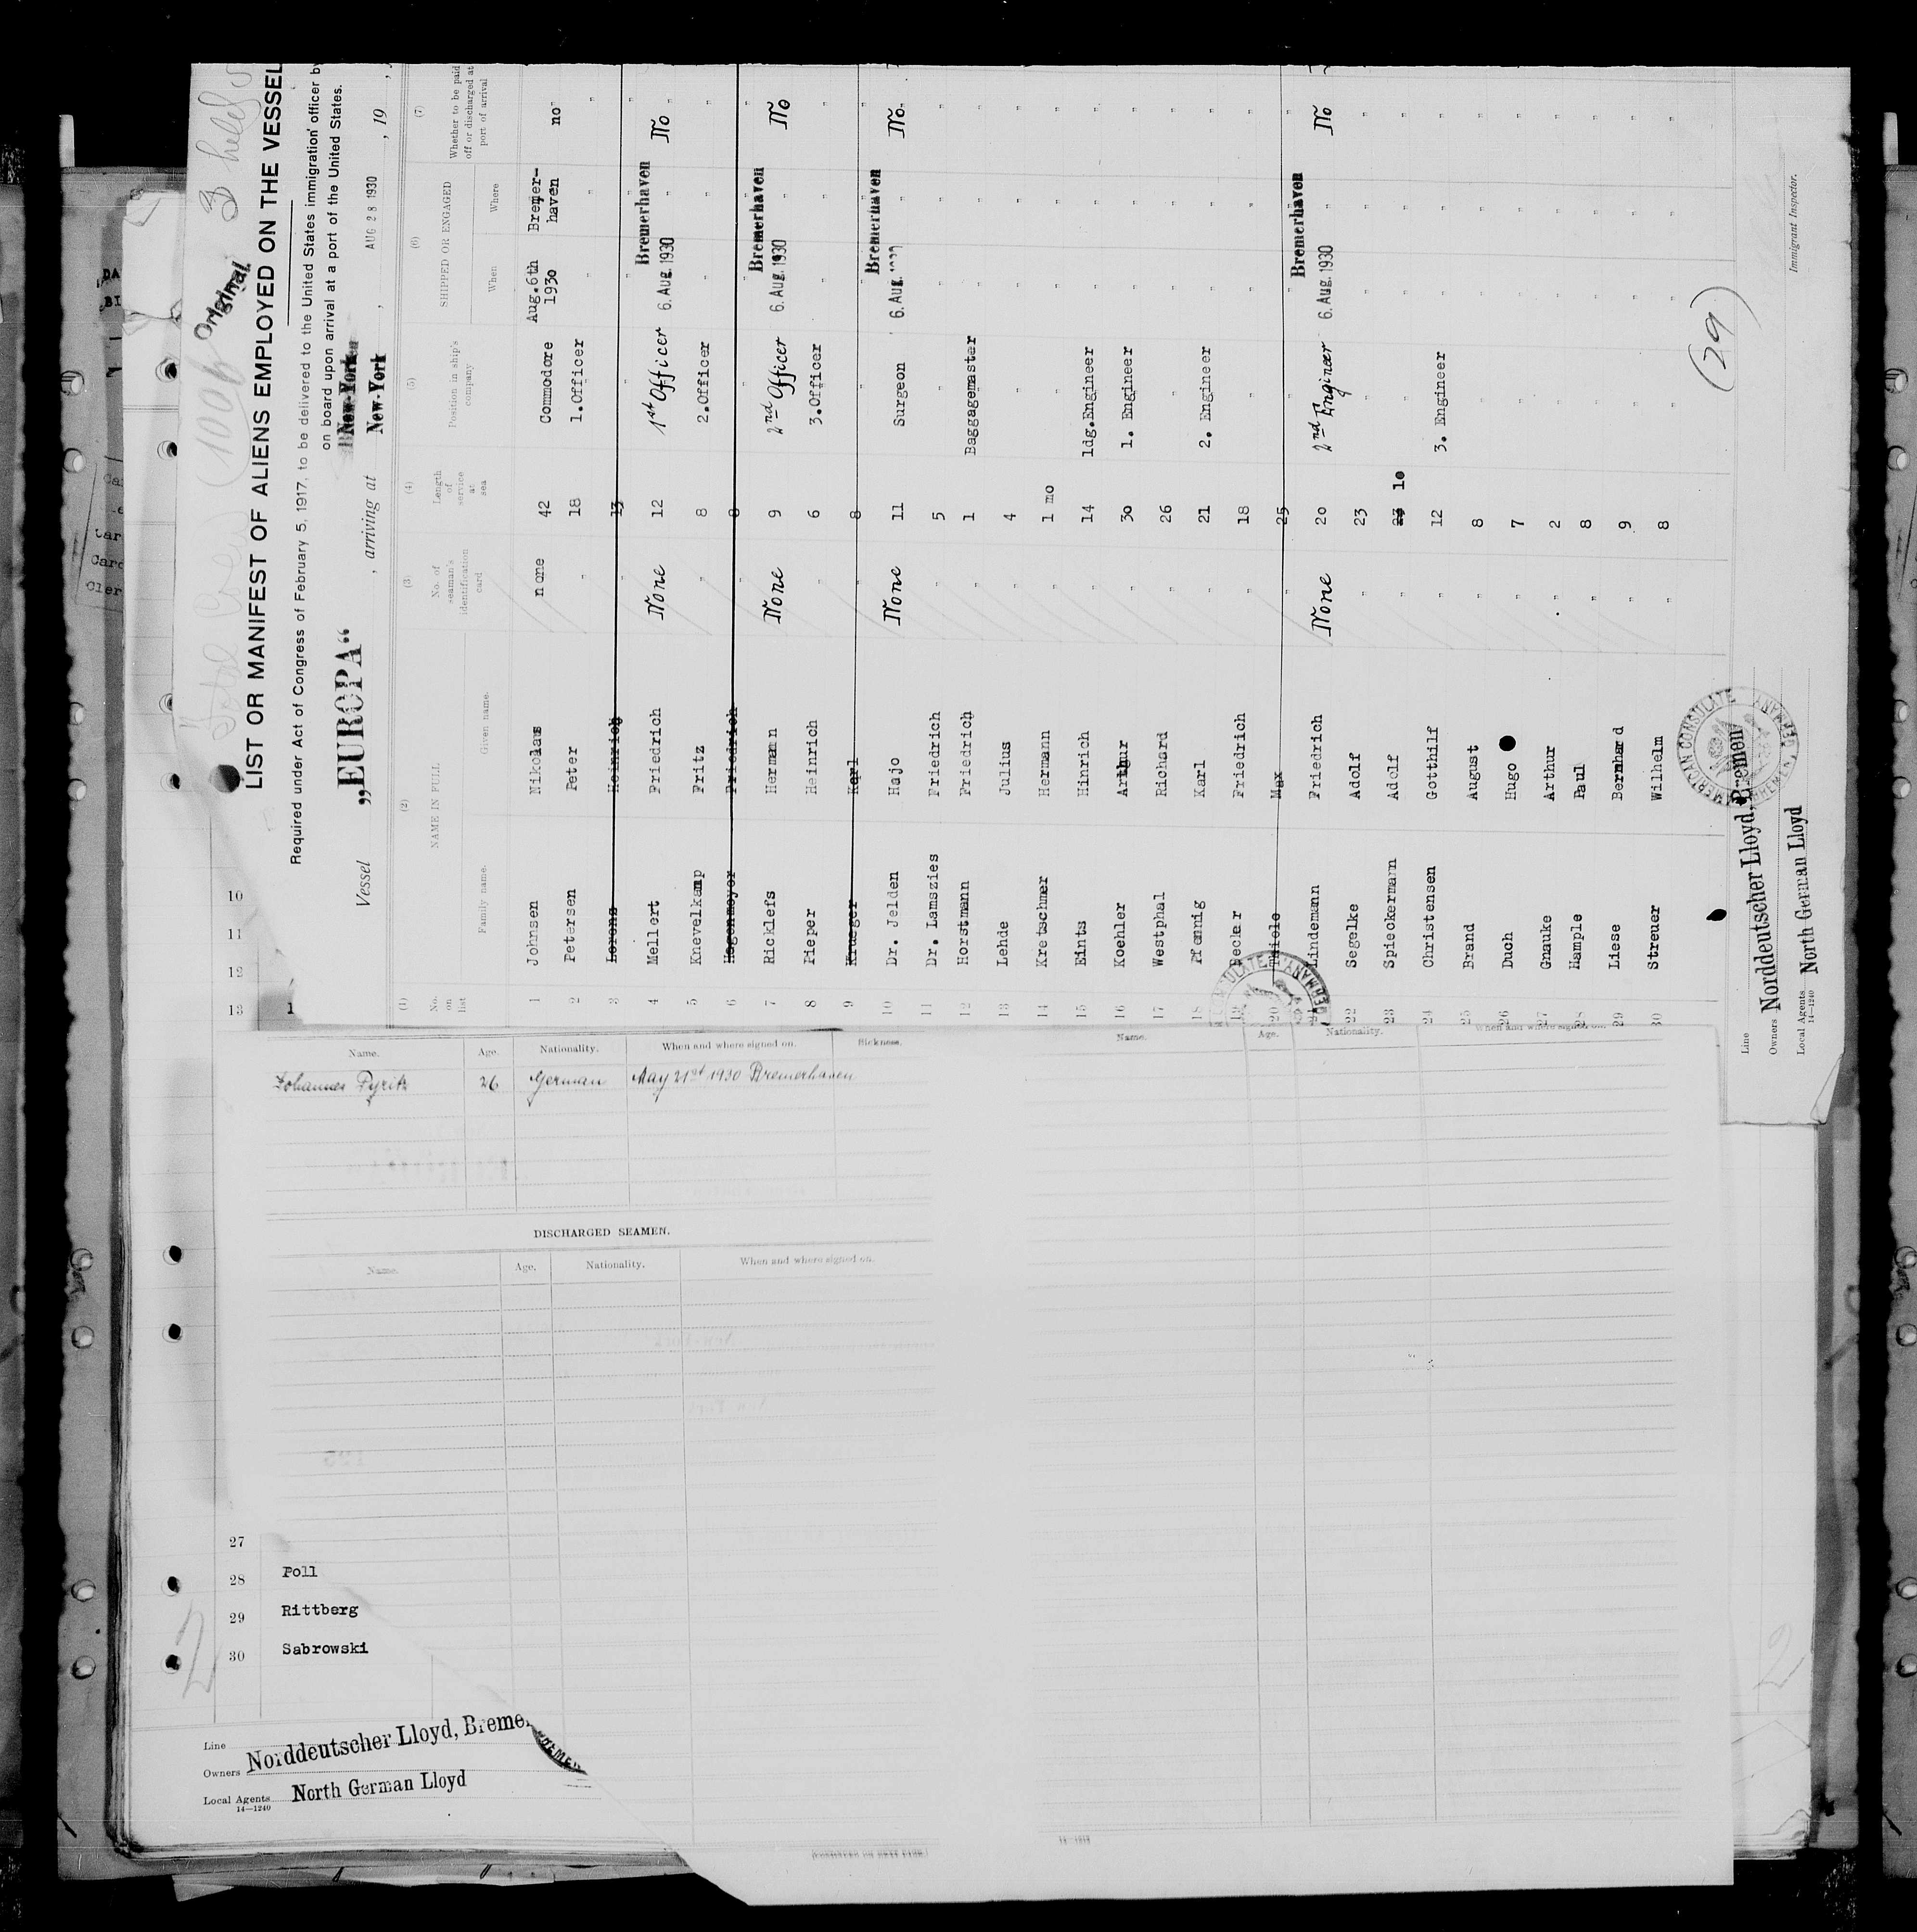 Total Crew (1006) 3 held
Original
LIST OR MANIFEST OF ALIENS EMPLOYED ON THE VESSEL
Required under Act of Congress of February 5, 1917, to be delivered to the United States immigration officer by
on board upon arrival at a port of the United States.
New-York
Vessel „EUROPA“ , arriving at New-York , AUG 28 1930 , 19
(1) (2) (3) (4) (5) (6) (7)
No. on list NAME IN FULL No. of seaman's identification card Length of service at sea Position in ship's company SHIPPED OR ENGAGED Whether to be paid off or discharged at port of arrival
Family name. Given name. When Where
1 Johnsen Nikolaus none 42 Commodore Aug.6th 1930 Bremer-haven no
2 Petersen Peter " 18 1.Officer " " "
3 Lorenz Heinrich " 13 " " " "
4 Mellert Friedrich None 12 1st Officer 6. Aug. 1930 Bremerhaven " No "
5 Knevelkamp Fritz " 8 2.Officer " " "
6 Hegenmeyer Friedrich " 8 " " " "
7 Ricklefs Hermann None 9 2nd Officer 6. Aug. 1930 Bremerhaven " No
8 Pieper Heinrich " 6 3.Officer " " "
9 Krueger Karl " 8 " " " "
10 Dr. Jelden Hajo None 11 Surgeon 6. Aug. Bremerhaven " No.
11 Dr. Lamszies Friedrich " 5 " " " "
12 Horstmann Friedrich " 1 Baggagemaster " " "
13 Lehde Julius " 4 " " " "
14 Kretschmer Hermann " 1 mo " " " "
15 Eints Hinrich " 14 ldg.Engineer " " "
16 Koehler Arthur " 30 1. Engineer " " "
17 Westphal Richard " 26 " " " "
18 Pfennig Karl " 21 2. Engineer " " "
19 Becker Friedrich " 18 " " " "
20 Thiele Max " 25 " " " "
21 Lindemann Friedrich None 20 2nd Engineer 6. Aug. 1930 Bremerhaven " No
22 Segelke Adolf " 23 " " " "
23 Spieckermann Adolf " 10 " " " "
24 Christensen Gotthilf " 12 3. Engineer " " "
25 Brand August " 8 " " " "
26 Duch Hugo " 7 " " " "
27 Gnauke Arthur 2 " " " "
28 Hample Paul " 8 " " " "
29 Liese Bernhard " 9 " " " "
30 Streuer Wilhelm " 8 " " " "
AMERICAN CONSULATE
BREMEN, GERMANY
(29)
Line
Owners Norddeutscher Lloyd, Bremen
Local Agents North German Lloyd
14—1240
Immigrant Inspector.
10
11
12
13
Name. Age. Nationality. When and where signed on. Sickness.
Johannes Pyritz 26 German May 21st 1930 Bremerhaven
Name. Age. Nationality. When and where signed on.
DISCHARGED SEAMEN.
Name. Age. Nationality. When and where signed on.
27
28 Poll
29 Rittberg
30 Sabrowski
2
Line
Owners Norddeutscher Lloyd, Breme
Local Agents North German Lloyd
14—1240